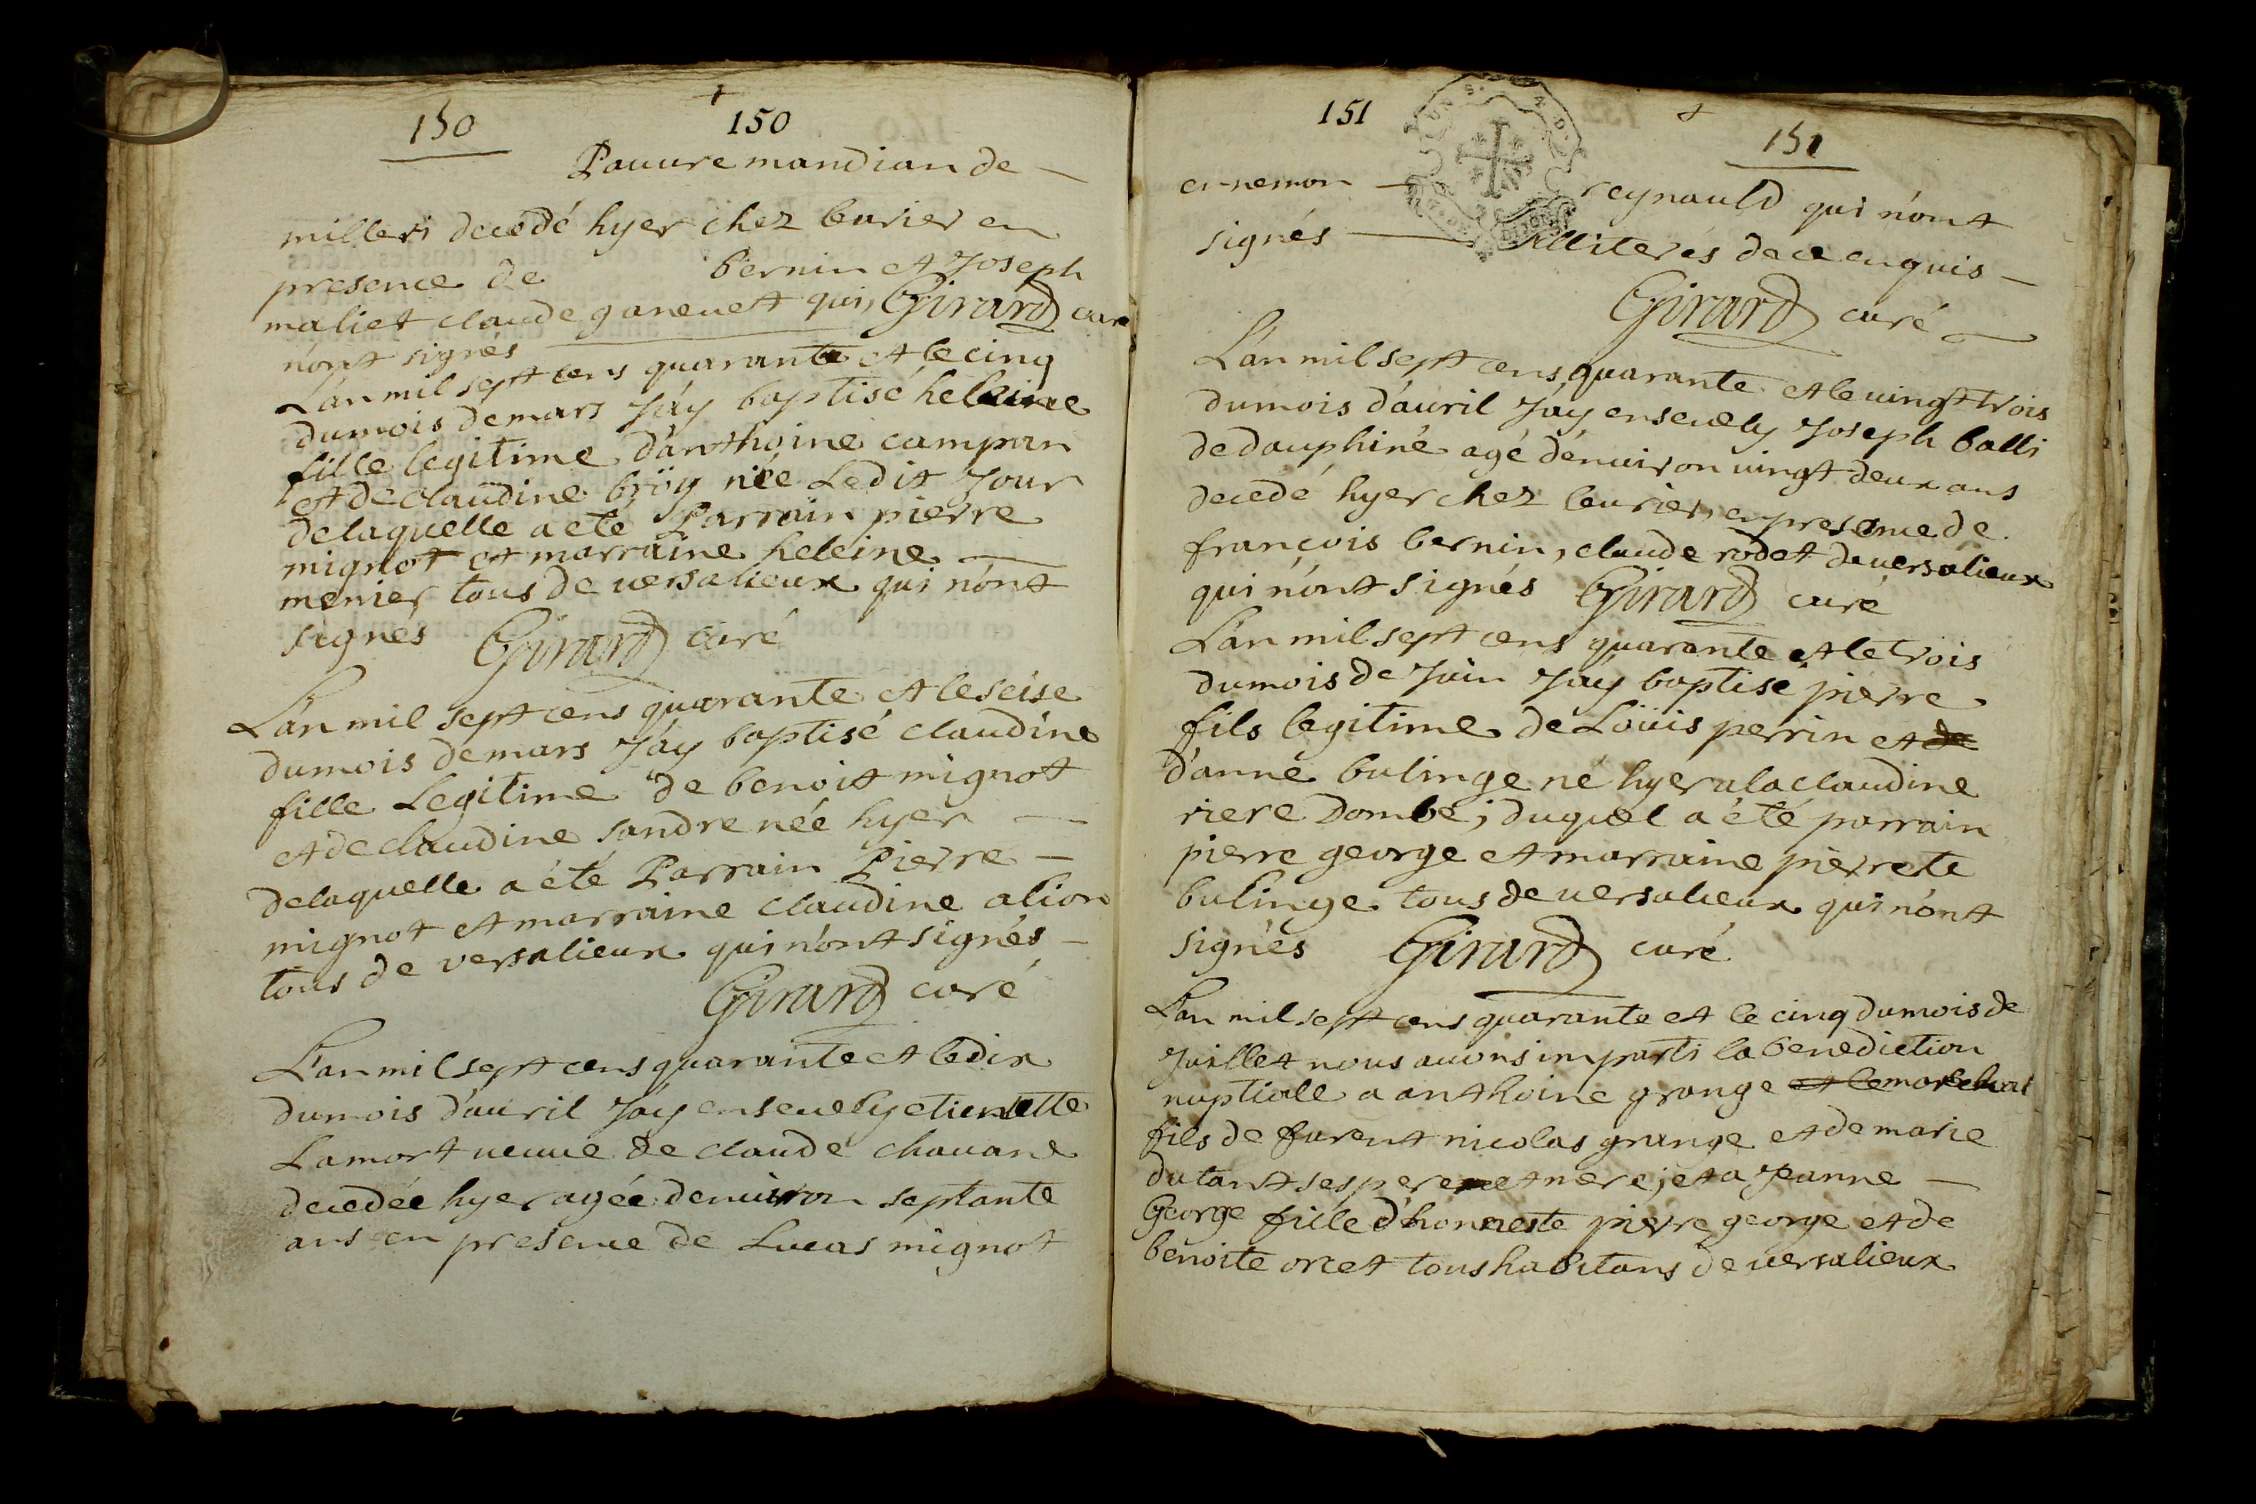 150
150
Pauure mandian de
milleri decedé hyer chez leurier en
presence de bernin et Joseph
maliet claude ganeuet qui, Girard curé
n'ont signés
L'an mil sept cens quarante et le cinq
dumois de mars J'ay baptisé heleine
fille legitime d'anthoine campan
et de claudine broy née Ledit Jour
de laquelle a eté Parrain pierre
mignot et marraine heleine
menier tous de uersalieux qui n'ont
signés Girard curé
L'an mil sept cens quarante et le seise
dumois de mars J'ay baptisé claudine
fille Legitime de benoit mignot
et de claudine sandre née hyer
de laquelle a été Parrain Pierre
mignot et marraine claudine alion
tous de versalieux qui n'ont signés
Girard curé
L'an mil sept cens quarante et le dix
dumois d'auril J'ay enseuely etiennette
Lamort ueuue de claude chauane
decedée hyer agée denuiron septante
ans en presence de Lucas mignot
151
151
ennemon reynauld qui n'ont
signés illiterés de ce enquis
Girard curé
L'an mil sept cens quarante et le uingt trois
dumois d'auril J'ay enseuely Joseph balli
de dauphiné agé d'enuiron uingt deux ans
decedé hyer chez leurier, en presence de
françois bernin, claude rodet de uersalieux
qui n'ont signés Girard curé
L'an mil sept cens quarante et le trois
dumois de Juin J'ay baptisé pierre
fils legitime de Loüis perrin et de
d'anne bulinge né hyer a la claudine
riere Dombe; duquel a été parrain
pierre george et marraine pierrete
bulinge tous de uersalieux qui n'ont
signés Girard curé
L'an mil sept cens quarante et le cinq dumois de
Juillet nous auons imparti la benediction
nuptialle a anthoine grange et le marechal
fils de furent nicolas grange et de marie
dutant ses pere et mere; et a Jeanne
George fille d'honneste pierre george et de
benoite orcet tous habitans de uersalieux